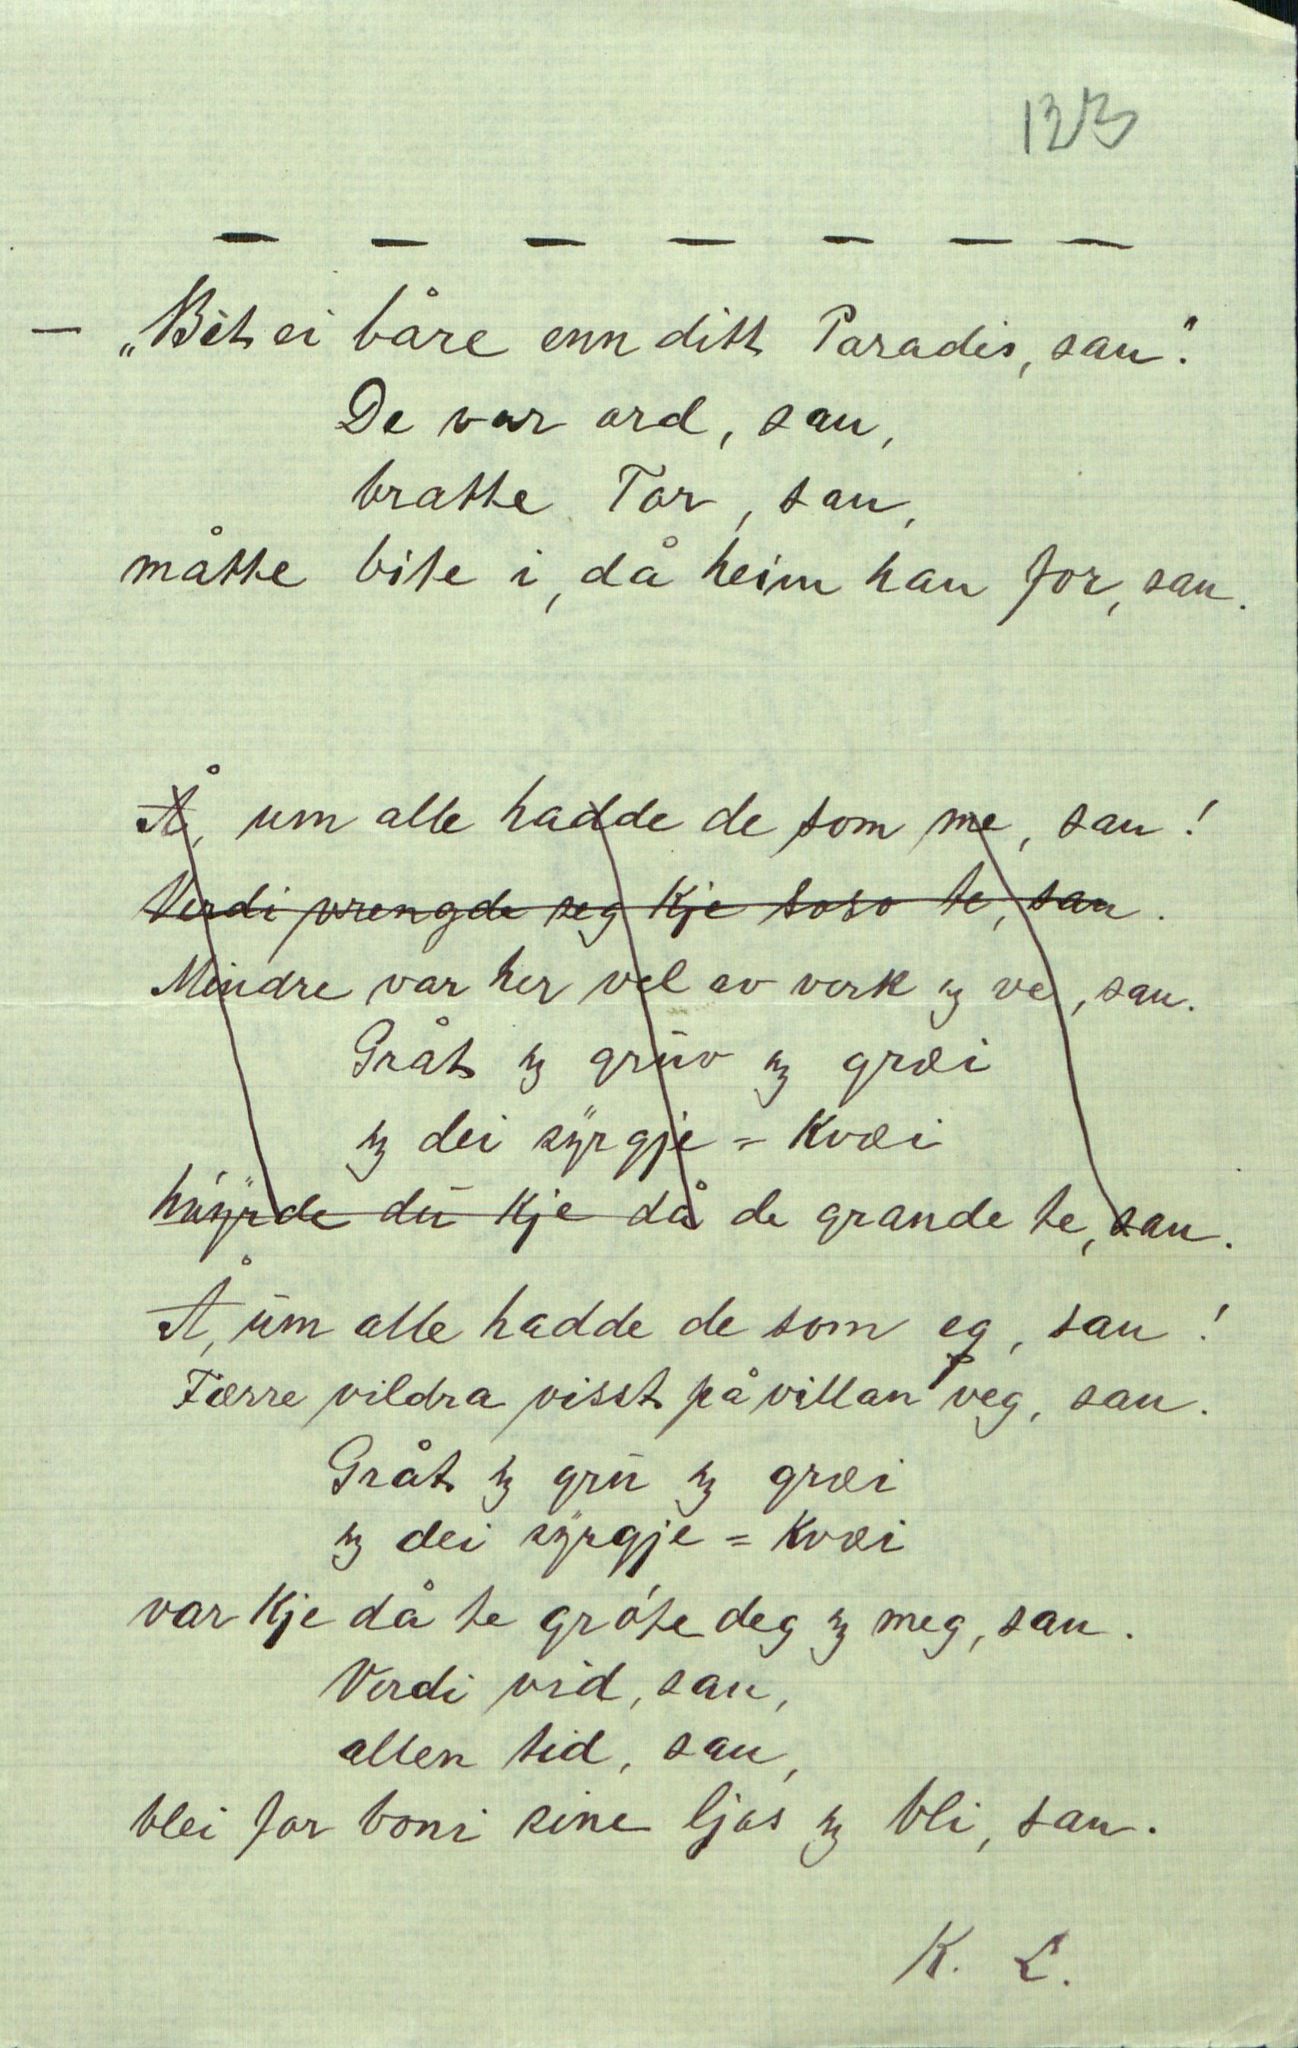 123
— — — — — — —
— „Bet ei båre enn ditt Paradis, san".
De var ord, san,
bratte Tor, san,
måtte bite i, då heim han for, san.
Å, um alle hadde de som me, san!
Verdi vrengde seg kje soso te, san.
Mindre var her vel av verk og ve, san.
Gråt og grūv og græi
og dei syrgje = Kvæi
høyrde dū kje då de grande te, san.
Å, ūm alle hadde de som eg, san!
Færre vildra visst på villan veg, san.
Gråt og grū og græi
og dei syrgje = Kvæi
var kje då te gróte deg og meg, san.
Verdi vid, san,
allen tid, san,
blei for boni sine ljos og bli, san.
K. L.